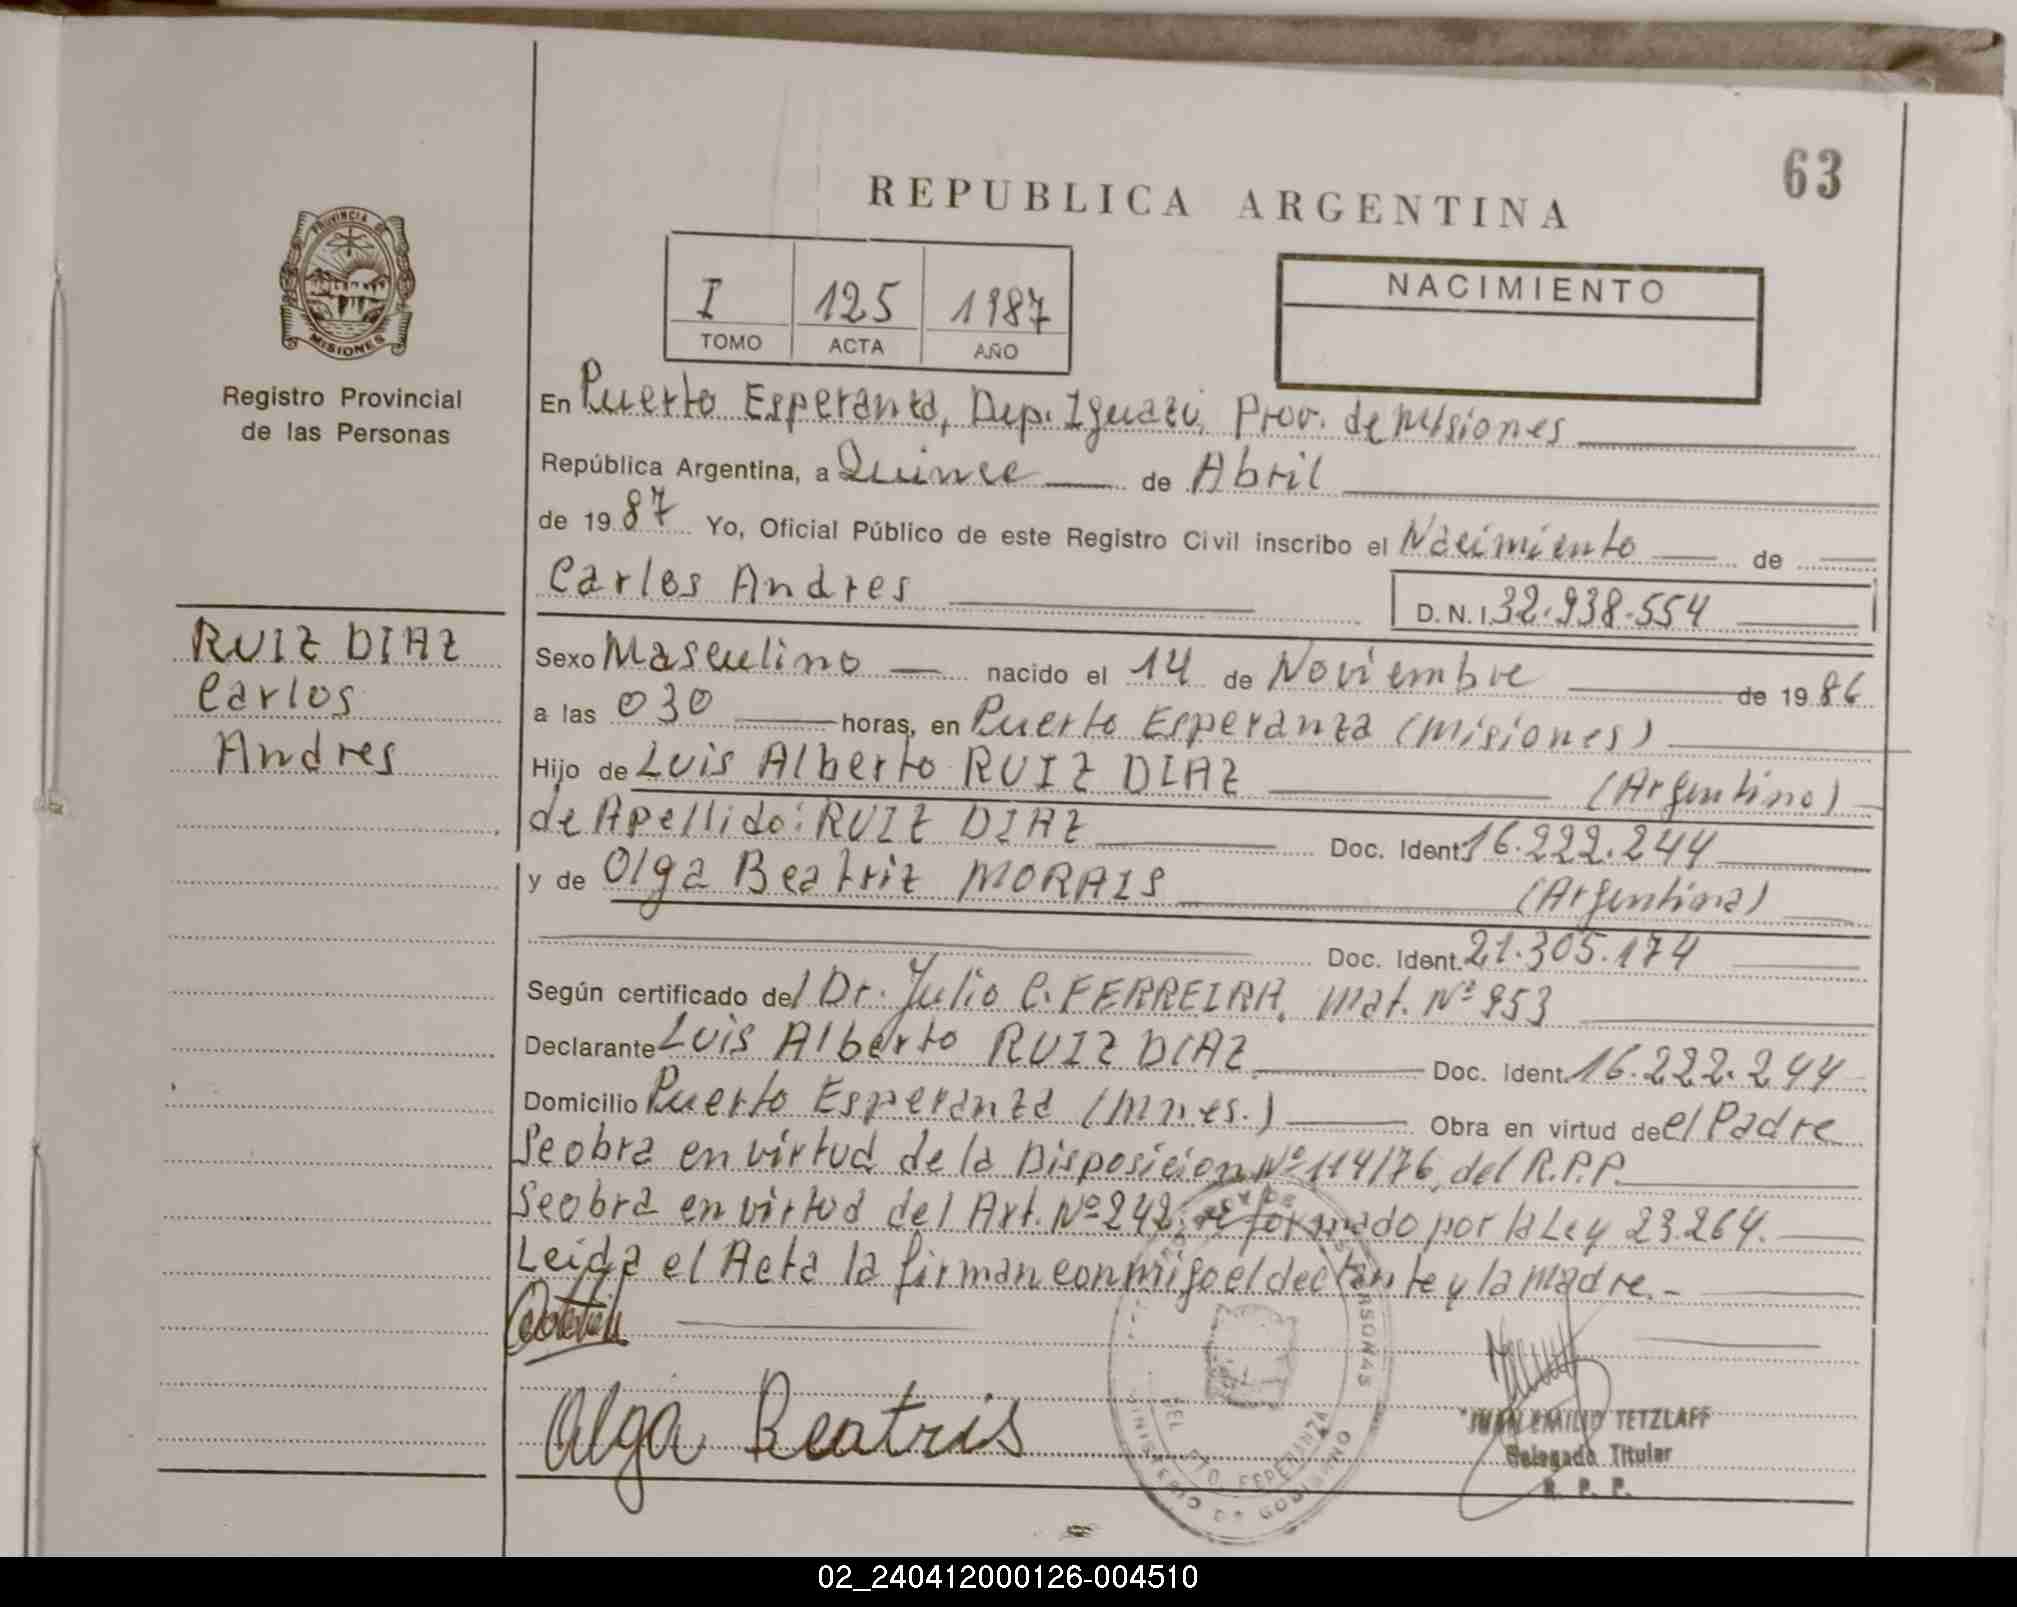 63
REPUBLICA ARGENTINA
PROVINCIA DE
MISIONES
Registro Provincial
de las Personas
I 125 1987
TOMO ACTA AÑO
NACIMIENTO
En Puerto Esperanza, Dep. Iguazú, Prov. de Misiones
República Argentina, a Quince de Abril
de 1987 Yo, Oficial Público de este Registro Civil inscribo el Nacimiento de
Carlos Andres
D. N. I. 32.938.554
RUIZ DIAZ
Carlos
Andres
Sexo Masculino nacido el 14 de Noviembre de 1986
a las 030 horas, en Puerto Esperanza (Misiones)
Hijo de Luis Alberto RUIZ DIAZ (Argentino)
de Apellido: RUIZ DIAZ Doc. Ident. 16.222.244
y de Olga Beatriz MORAIS (Argentina)
Doc. Ident. 21.305.174
Según certificado del Dr. Julio C. FERREIRA, Mat. Nº 953
Declarante Luis Alberto RUIZ DIAZ Doc. Ident. 16.222.244
Domicilio Puerto Esperanza (Mnes.) Obra en virtud de el Padre
Se obra en virtud de la Disposicion Nº 114/76, del R.P.P.
Se obra en virtud del Art. Nº 242, reformado por la Ley 23.264.
Leida el Acta la firman conmigo el declarante y la madre.-
Olga Beatris
MINISTERIO DE GOBIERNO
DEL PTO. ESPERANZA
JUAN EMILIO TETZLAFF
Delegado Titular
R. P. P.
02_240412000126-004510